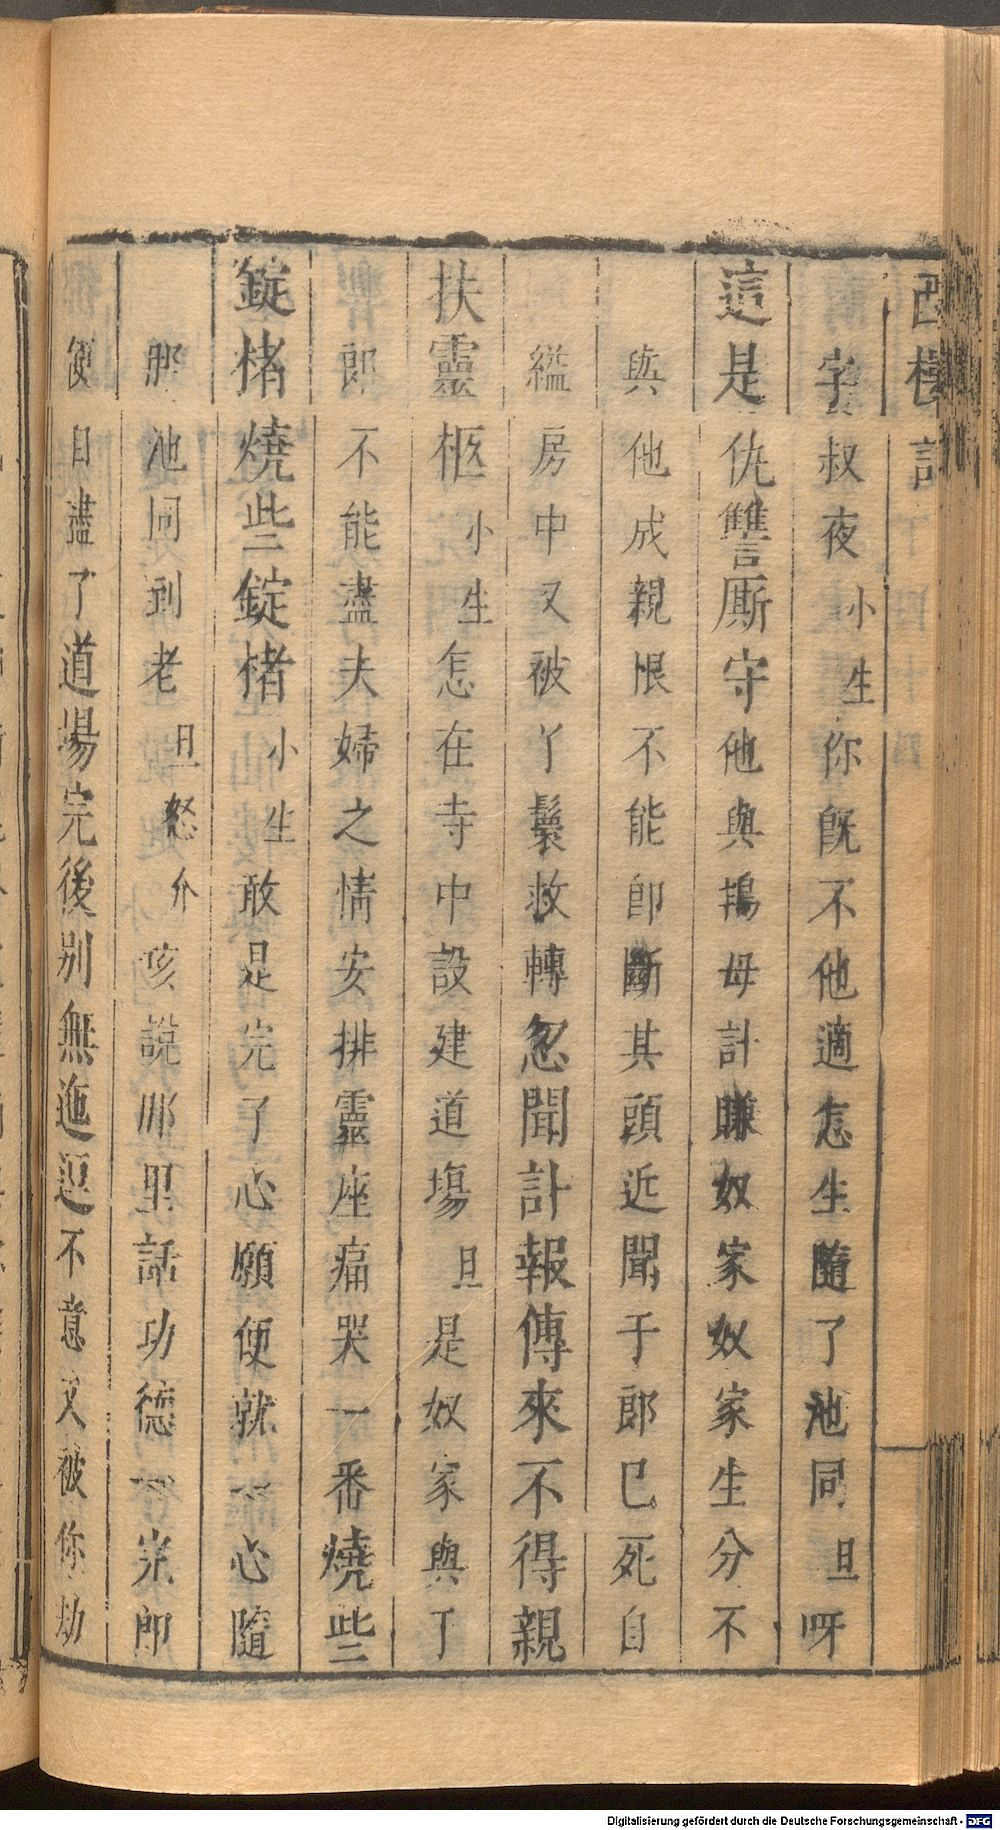 西樓記
字叔夜小生你既不他適怎生隨了池同旦呀
這是仇讐厮守他與搗母計賺奴家奴家生分不
與他成親恨不能卽斷其頭近聞于郎已死自
縊房中又被丫鬟救轉忽聞訃報傳來不得親
扶靈柩小生怎在寺中設建道塲旦是奴家與了
郎不能盡夫婦之情安排靈座痛哭一番燒些
錠楮燒些錠楮小生敢是完了心願便就一心隨
那池同到老旦怒介咳說那里話功德一完卽
便自盡了道塲完後别無迤逗不意又被你劫
Digitalisierung gefördert durch die Deutsche Forschungsgemeinschaft - DFG